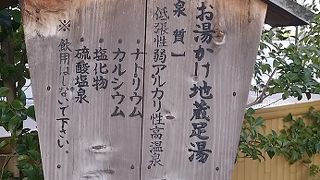 お湯かけ地蔵足湯
泉質】
低張性弱アルカリ性高温泉
ナトリウム
カルシウム
塩化物
硫酸塩泉
※飲用はしないで下さい。